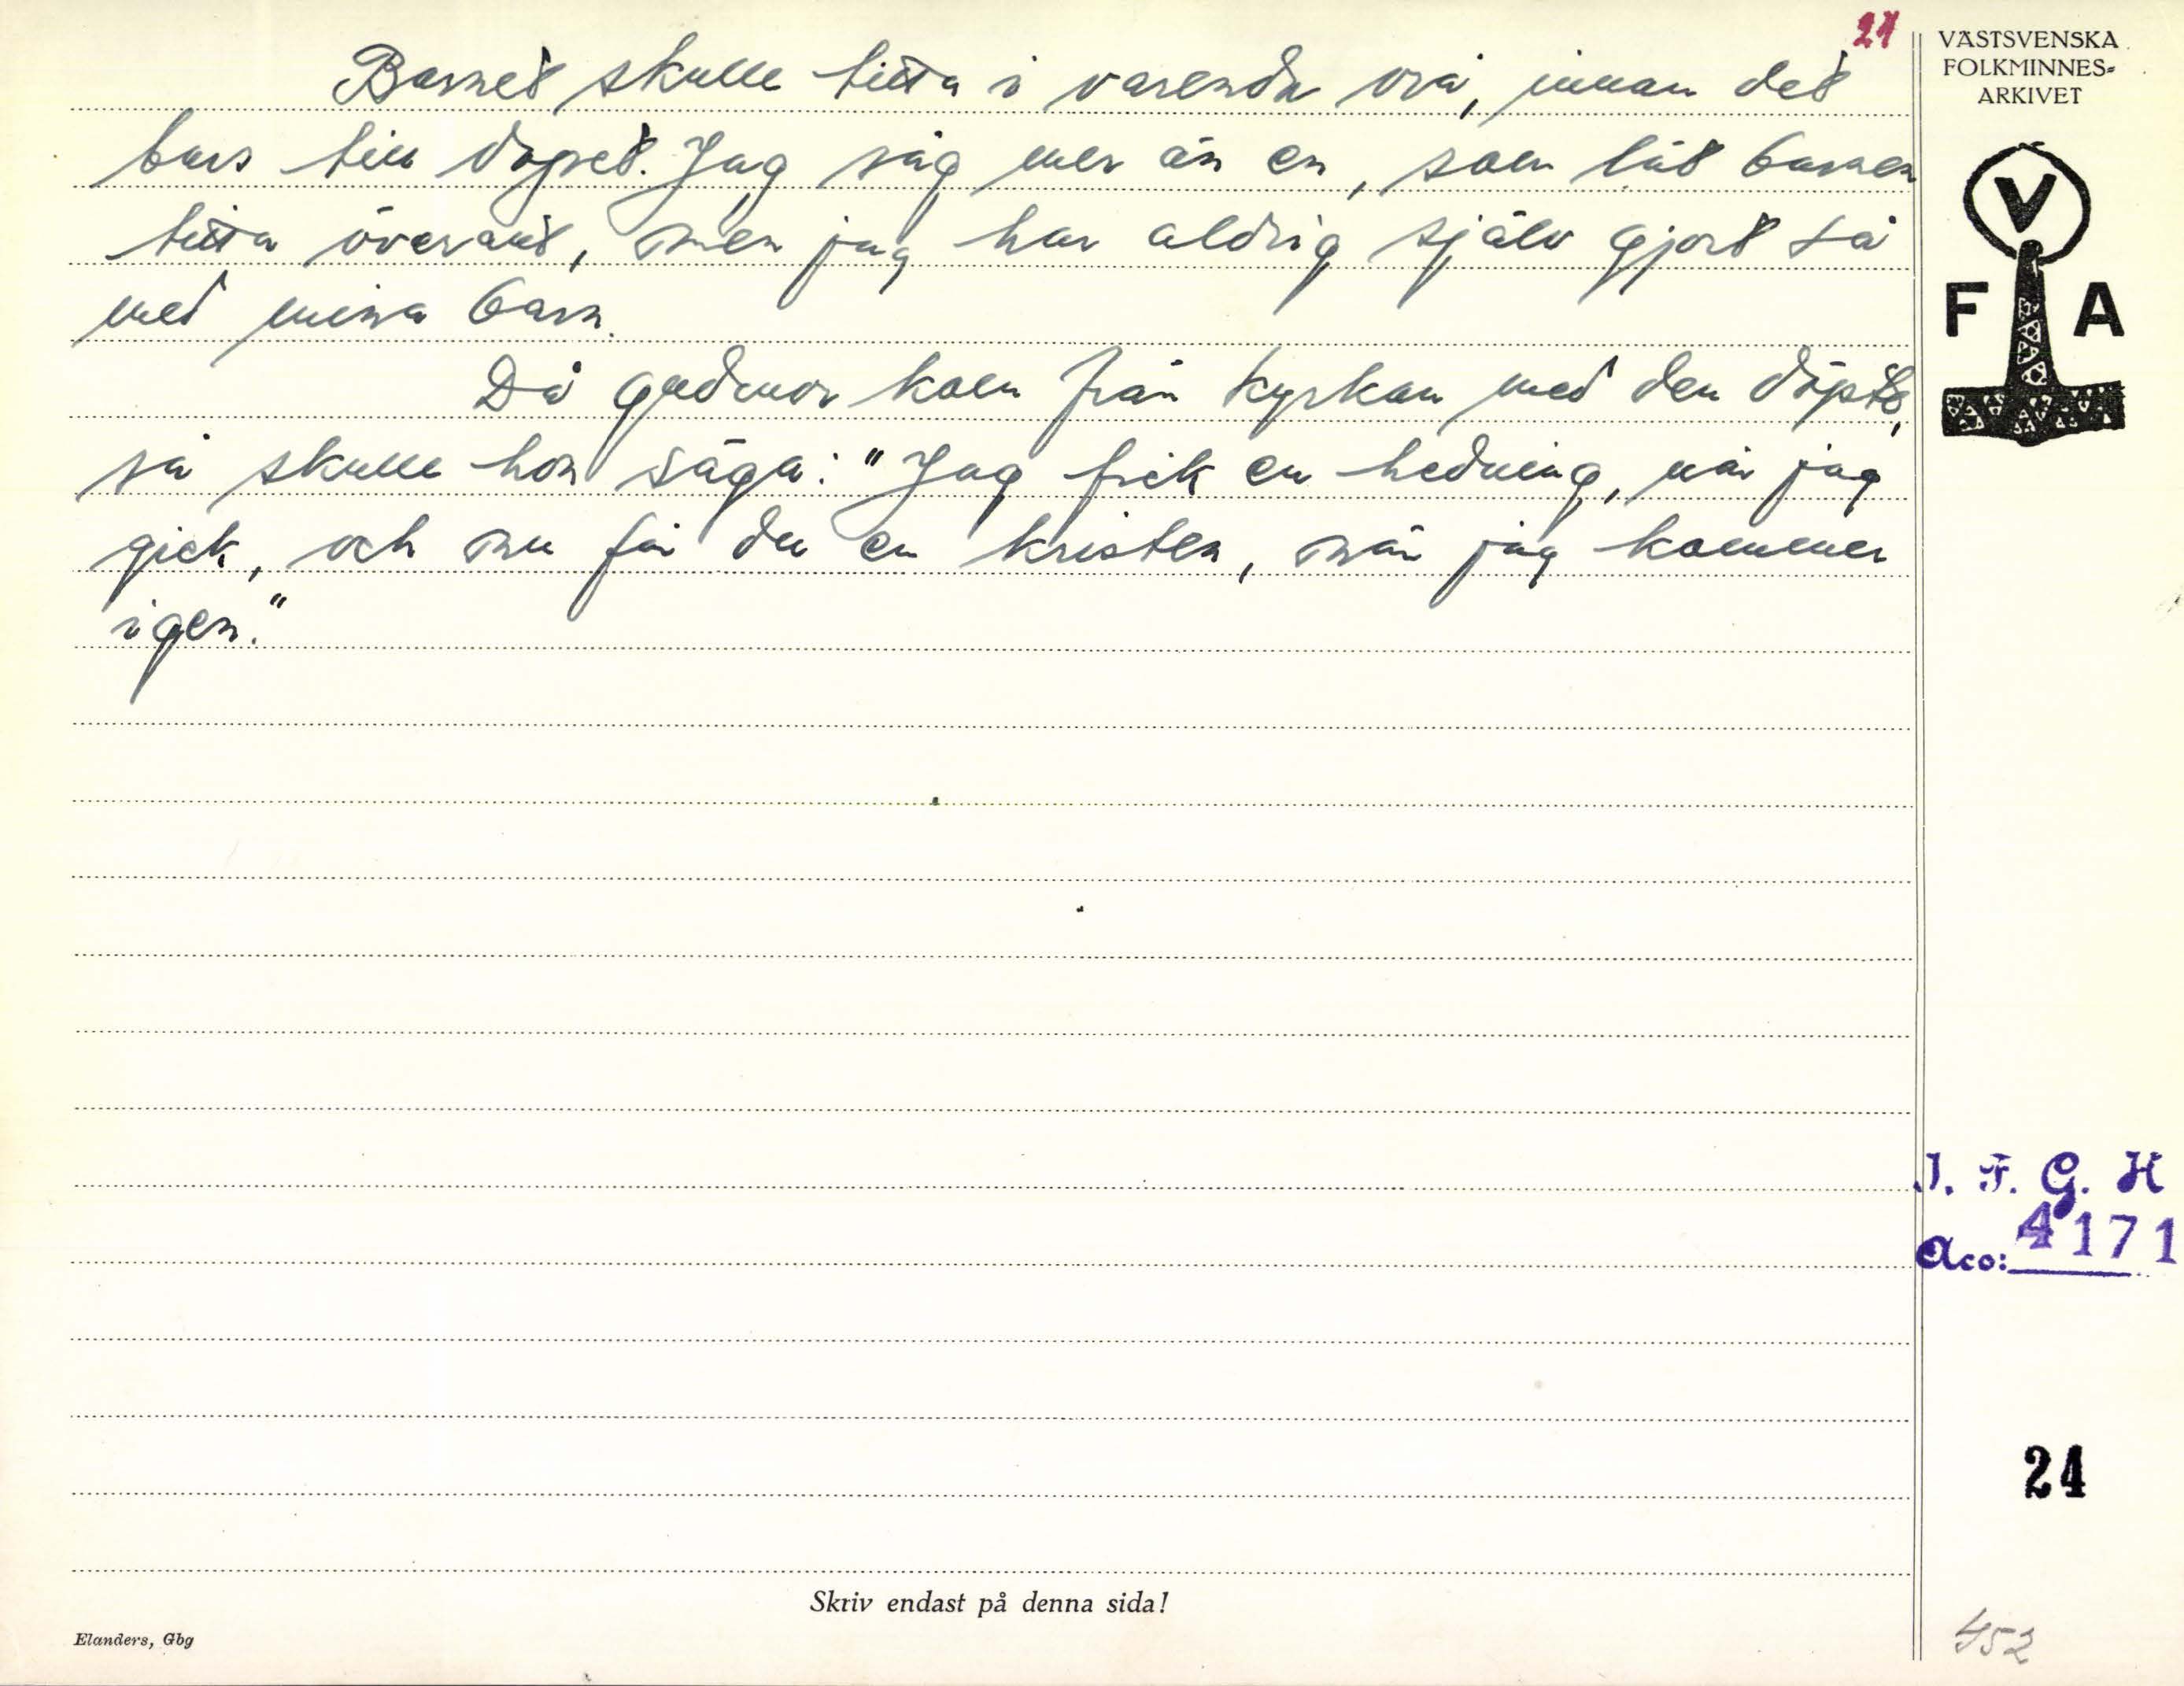 24
Barnet skulle titta i varenda vrå, innan det
bars till dopet. Jag såg mer än en, som lät barnen
titta överallt, men jag har aldrig själv gjort så
med mina barn.
Då gudmor kom från kyrkan med den döpte,
så skulle hon säga: "Jag fick en hedning, när jag
gick, och nu får du en kristen, när jag kommer
igen."
VÄSTSVENSKA
FOLKMINNES-
ARKIVET
V
F A
I. F. G. H
Acc: 4171
24
Skriv endast på denna sida!
Elanders, Gbg
452